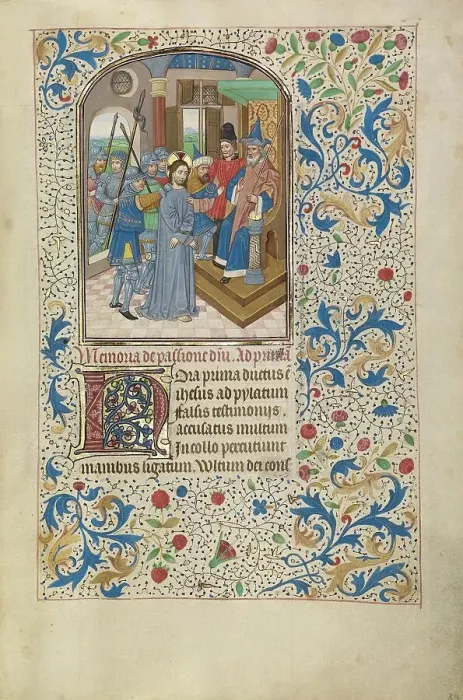 Memoria de passione dñi. Ad prima
Hora prima ductus ē
ihesus ad pylatum
falsis testimonijs.
accusatus multum
In collo percutiunt
manibus ligatum. Vultum dei conſ